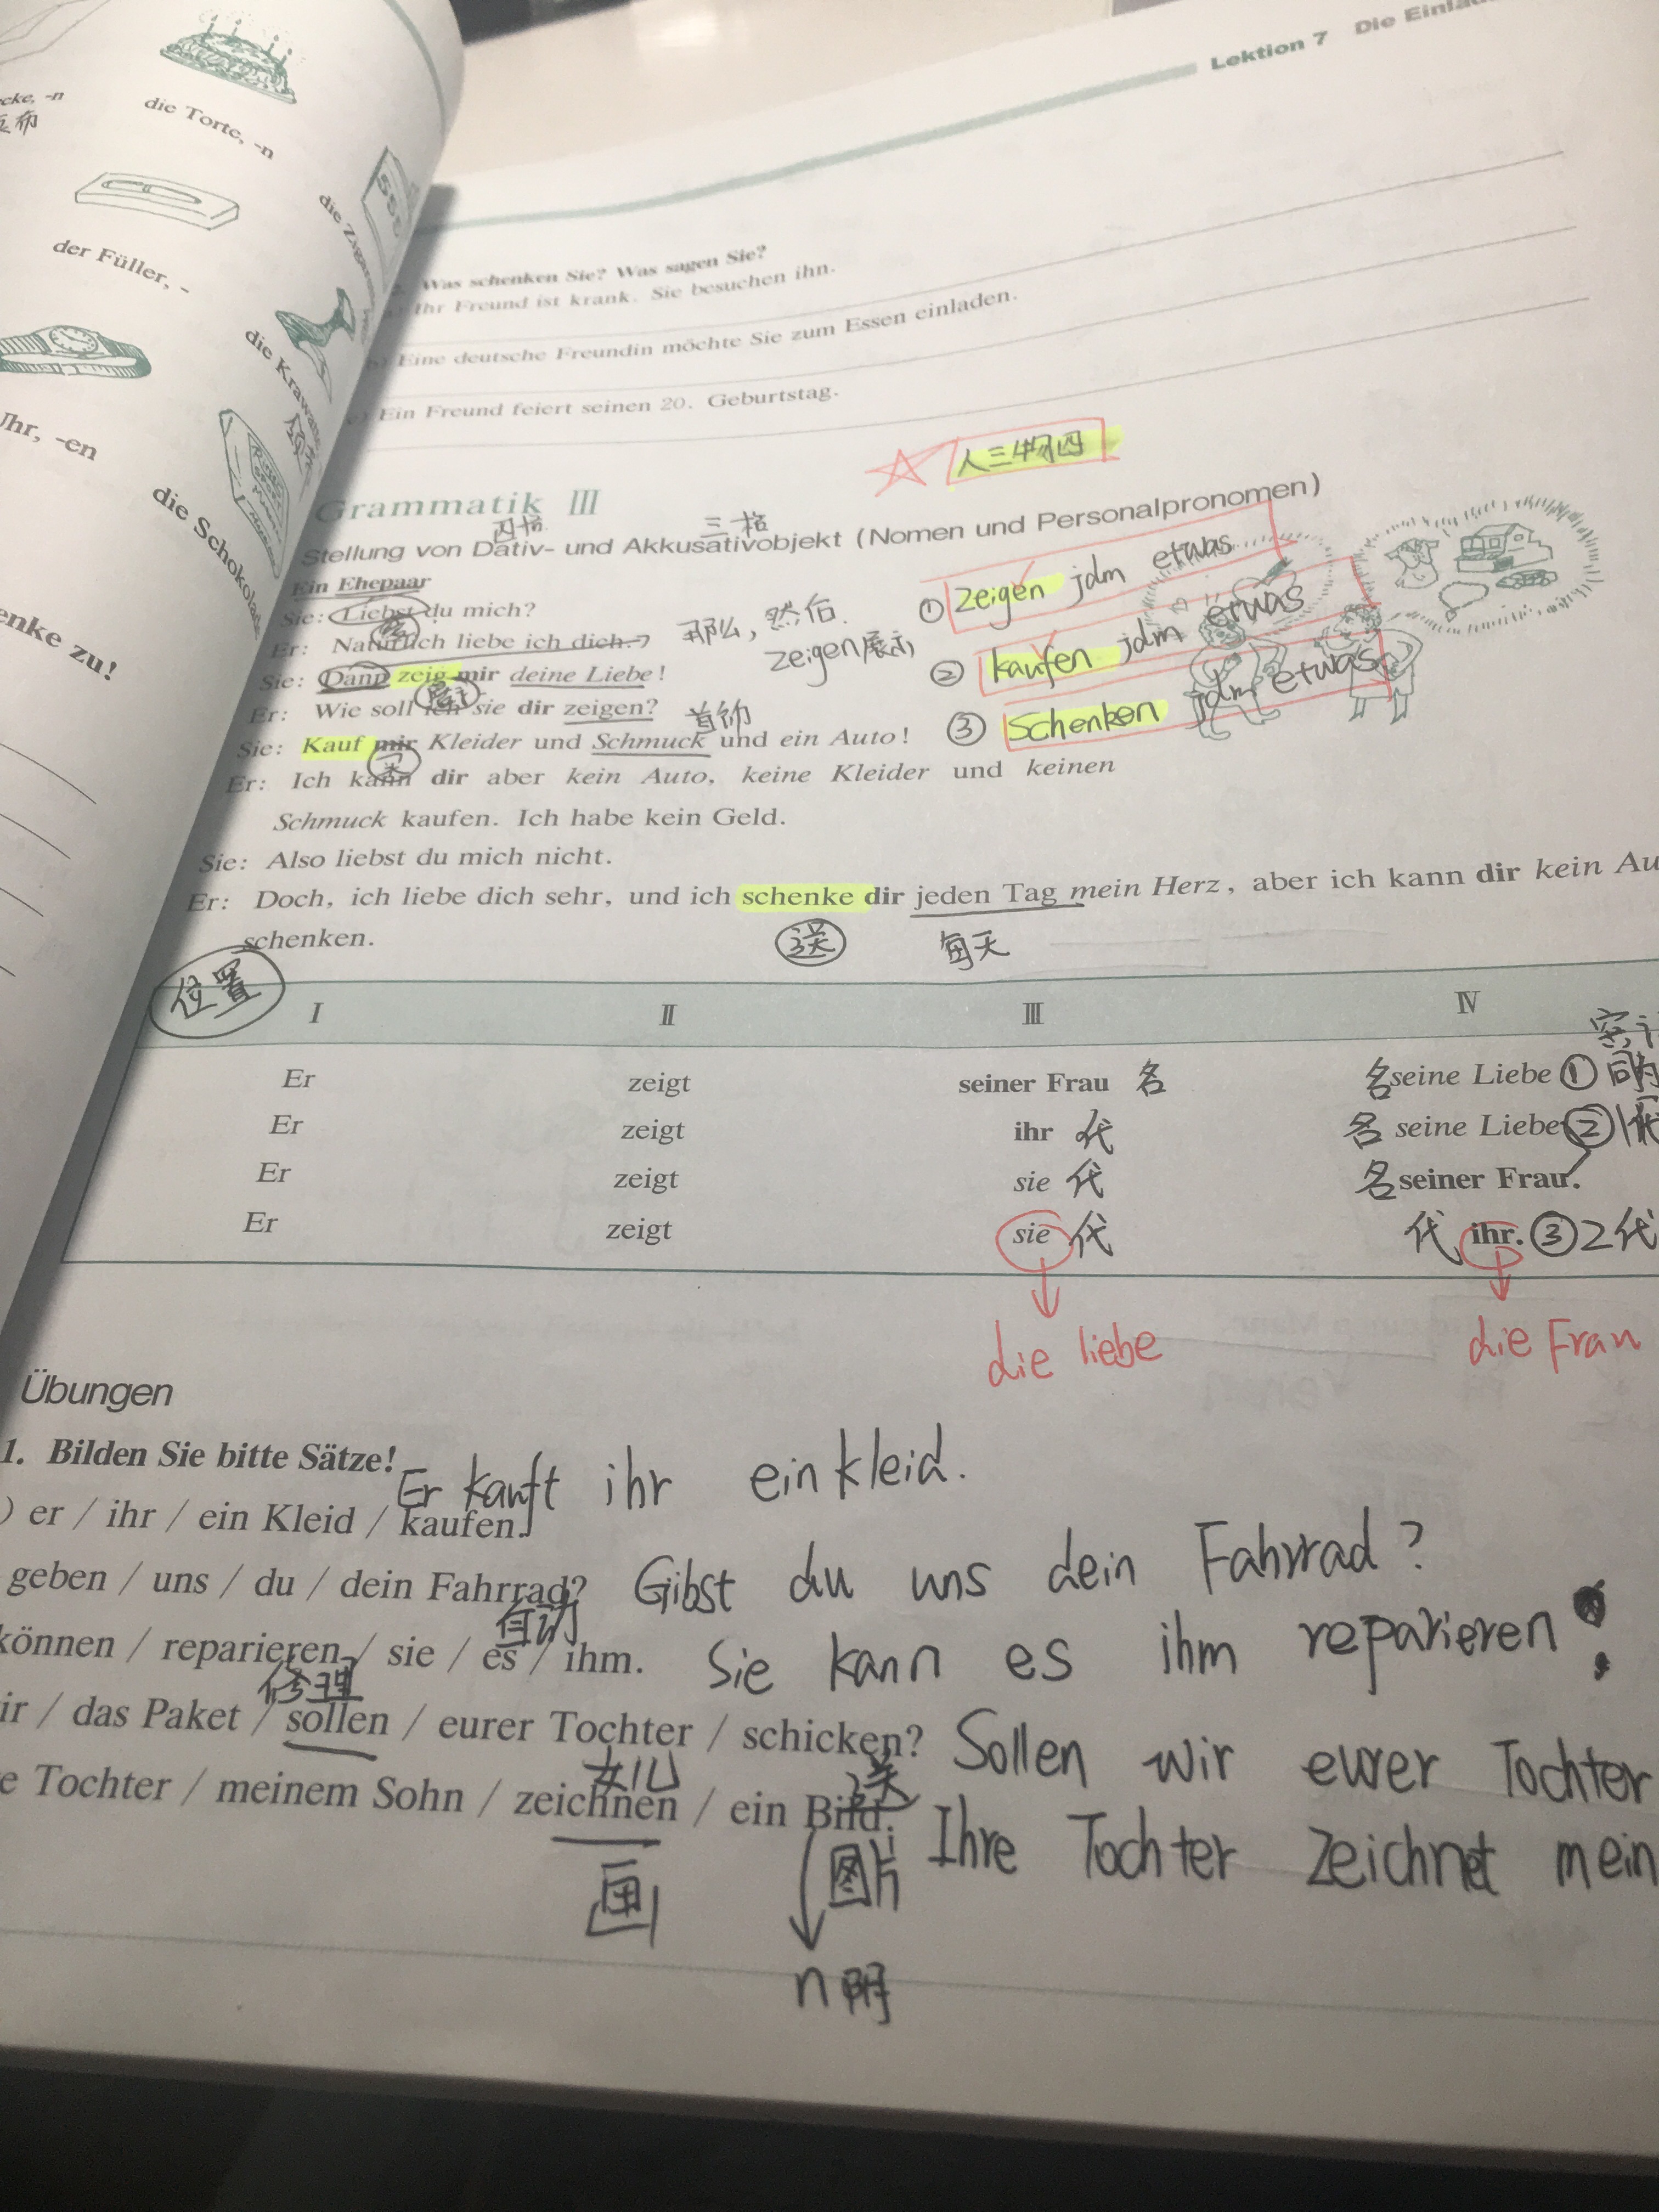 Lektion 7 Die
die Torte, -n
der Füller, -
Uhr, -en
die Krawatte
die Schokolade
enke zu!
Was schenken Sie? Was sagen Sie?
Ihr Freund ist krank. Sie besuchen ihn.
Eine deutsche Freundin möchte Sie zum Essen einladen.
Ein Freund feiert seinen 20. Geburtstag.
人三物四
Grammatik Ⅲ
四格 三格
Stellung von Dativ- und Akkusativobjekt (Nomen und Personalpronomen)
Ein Ehepaar
① zeigen jdm etwas
Sie: Liebst du mich?
Er: Natürlich liebe ich dich.
那么, 然后.
zeigen展示
② kaufen jdm etwas
Sie: Dann zeig mir deine Liebe!
Er: Wie soll ich sie dir zeigen?
首饰
③ Schenken jdm etwas
Sie: Kauf mir Kleider und Schmuck und ein Auto!
买
Er: Ich kann dir aber kein Auto, keine Kleider und keinen
Schmuck kaufen. Ich habe kein Geld.
Sie: Also liebst du mich nicht.
Er: Doch, ich liebe dich sehr, und ich schenke dir jeden Tag mein Herz, aber ich kann dir kein Au
schenken.
送 每天
位置
I Ⅱ Ⅲ Ⅳ
Er zeigt seiner Frau 名 名 seine Liebe ①
Er zeigt ihr 代 名 seine Liebe ②
Er zeigt sie 代 名 seiner Frau.
Er zeigt sie 代 代 ihr. ③ 2代
die liebe die Frau
Übungen
1. Bilden Sie bitte Sätze!
Er kauft ihr ein kleid.
) er / ihr / ein Kleid / kaufen.
geben / uns / du / dein Fahrrad? Gibst du uns dein Fahrrad?
können / reparieren / sie / es / ihm. Sie kann es ihm reparieren
修理
ir / das Paket / sollen / eurer Tochter / schicken? Sollen wir eurer Tochter
女儿 送
e Tochter / meinem Sohn / zeichnen / ein Bild. Ihre Tochter zeichnet mein
画 图片
n